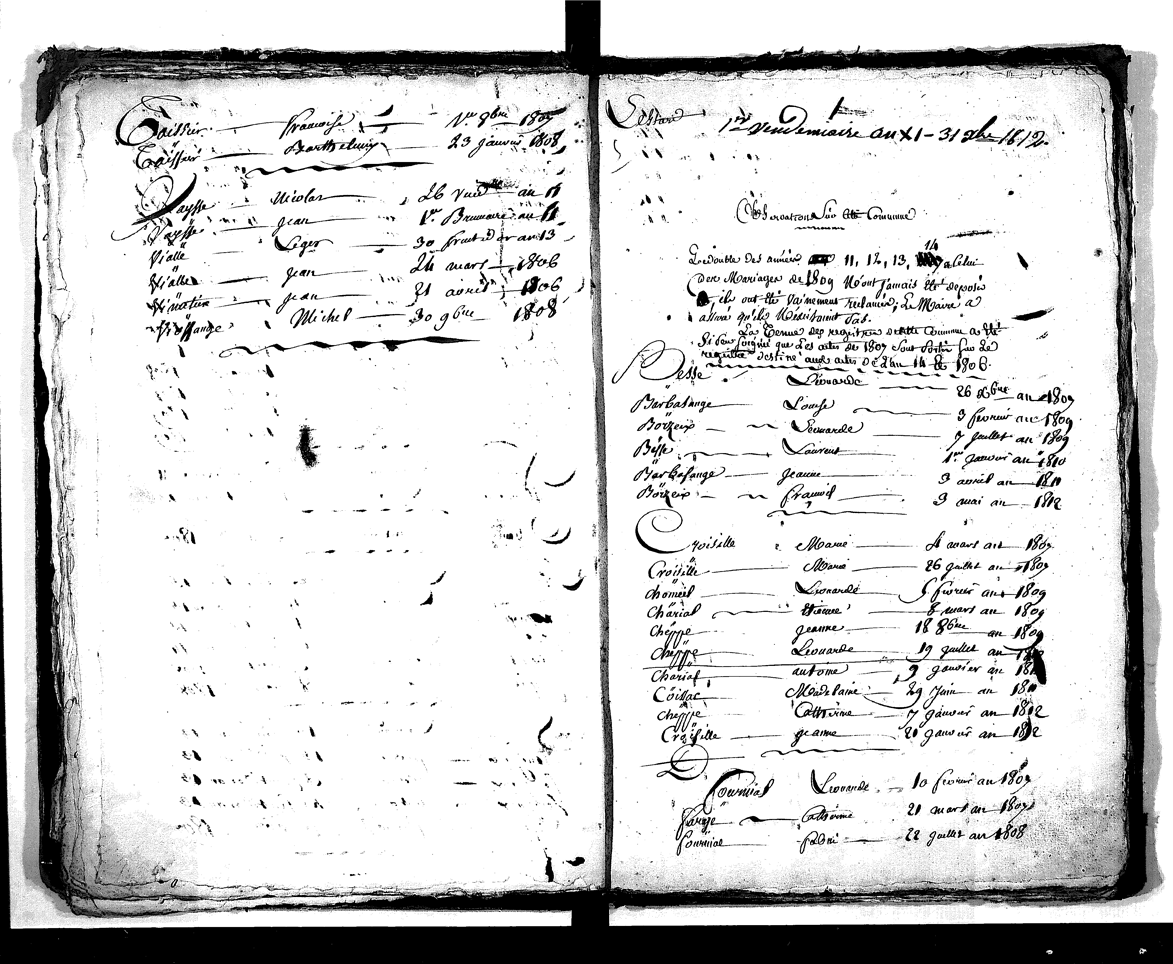 Taissier Francoise 1er 8bre 1807
Taissier Barthelemy 23 janvier 1808
Vaysse Nicolas 26 vend an 11
Vaysse jean 1er Brumaire an 11
Vialle Leger 30 fructidor an 13
Vialle jean 24 mars 1806
Vinatier jean 21 avril 1806
Viossange Michel 30 9bre 1808
Lestard
1er vendemiaire an XI - 31 xbre 1812.
Observations Sur Cette Commune
Le double des années 11, 12, 13, 14 & Celui
des Mariages de 1809 N'ont jamais été deposés
ils ont été Vainement reclamés; Le Maire a
assuré qu'ils N'existoient pas.
La Tenue des registres de cette Commune a été
Si peu soignée que Les actes de 1807 Sont portés Sur Le
registre destiné aux actes de L'an 14 & 1806.
Besse Léonarde 26 xbre an 1809
Barbasange Louise 3 fevrier an 1809
Bouzeix Leonarde 7 juillet an 1809
Besse Laurent 1er janvier an 1810
Barbasange jeanne 3 avril an 1811
Bouzeix francois 3 mai an 1812
Croisille Marie 4 mars an 1809
Croisille Marie 26 juillet an 1809
Chomeil Leonarde 5 fevrier an 1809
Charial Etienne 8 mars an 1809
Cheppe jeanne 18 8bre an 1809
Cheppe Leonarde 19 juillet an
Charial antoine 9 janvier an
Coissac Madelaine 29 juin an 1811
Cheppe Catherine 7 janvier an 1812
Croisille jeanne 21 janvier an 1812
D
Fournial Leonarde 10 fevrier an 1809
Farge Catherine 21 mars an 1809
Fournial 22 juillet an 1808